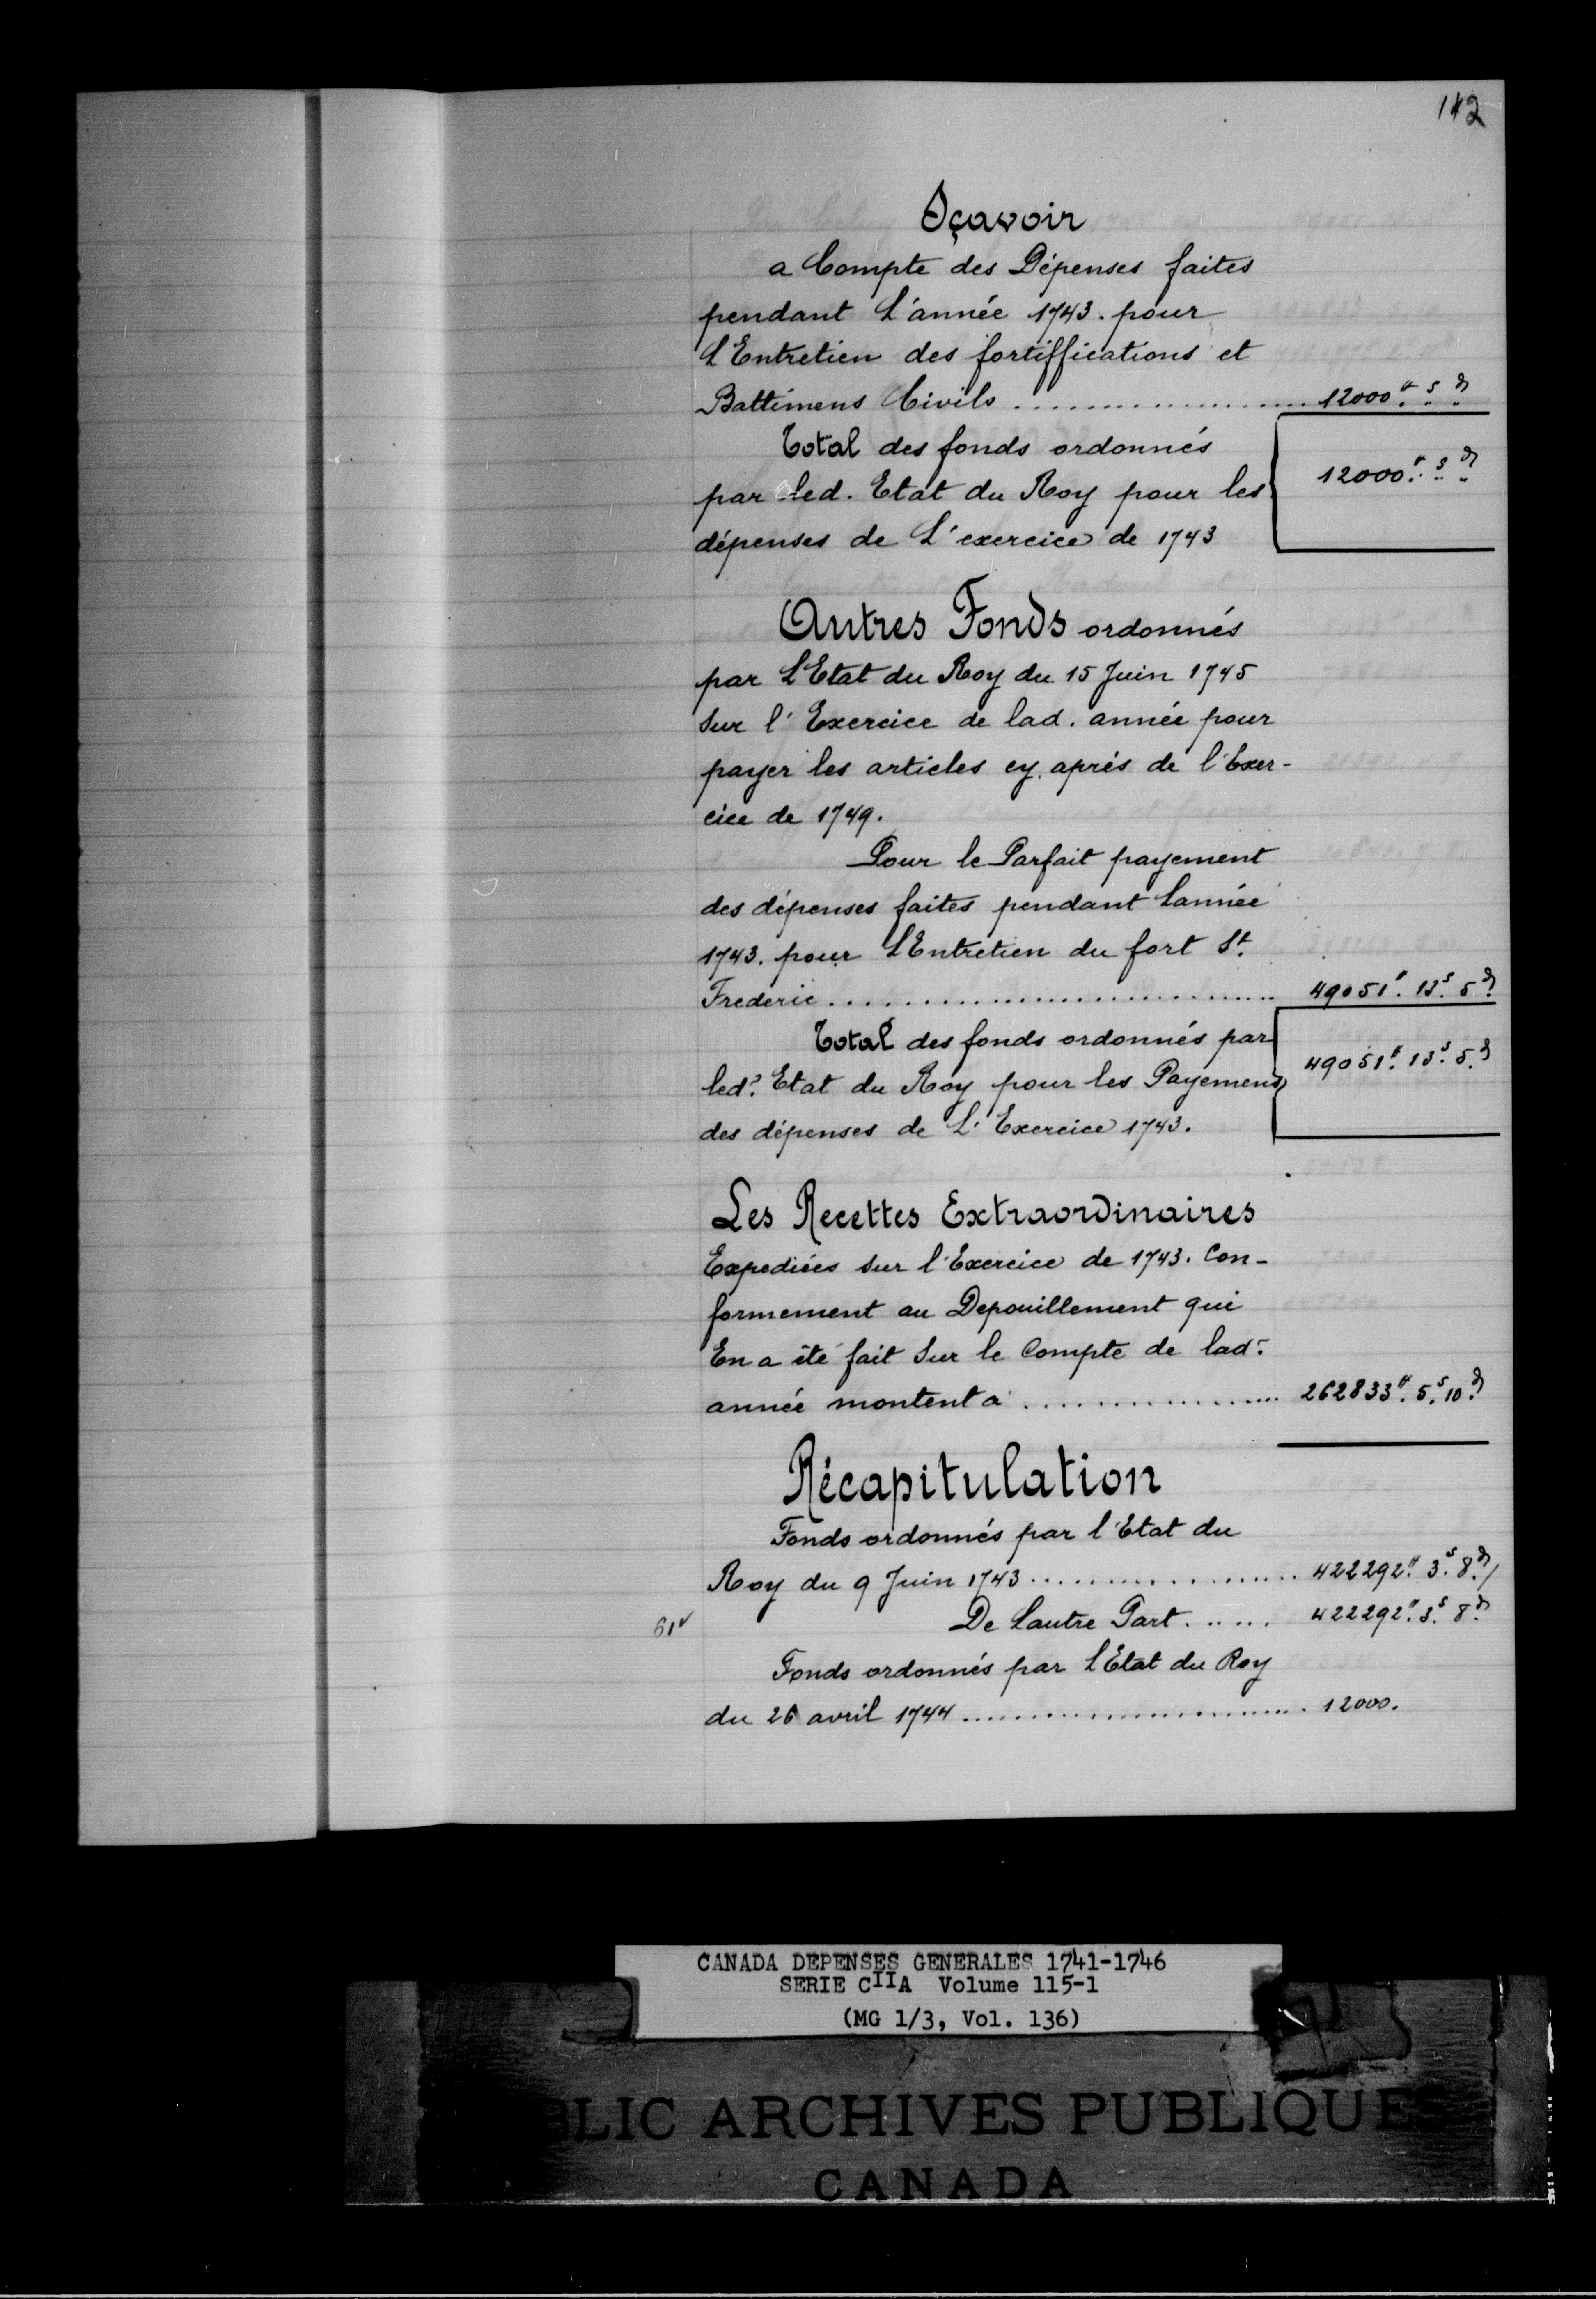 112
Sçavoir
a Compte des Dépenses faites
pendant L'année 1743. pour
L'Entretien des fortiffications et
Battimens Civils .................... 12000.ᵗᵗ ..ˢ ..ᵈ
Total des fonds ordonnés
par led. Etat du Roy pour les 12000.ᵗᵗ ..ˢ ..ᵈ
dépenses de L'exercice de 1743
Autres Fonds ordonnés
par L'Etat du Roy du 15 Juin 1745
Sur l'Exercice de lad. année pour
payer les articles cy. aprés de l'Exer-
cice de 1749.
Pour le Parfait payement
des dépenses faites pendant Lannée
1743. pour L'Entretien du fort St.
Frederic .............................. 49051.ᵗᵗ 13.ˢ 5.ᵈ
Total des fonds ordonnés par
led? Etat du Roy pour les Payemens 49051.ᵗᵗ 13.ˢ 5.ᵈ
des dépenses de L'Exercice 1743.
Les Recettes Extraordinaires
Expediées sur l'Exercice de 1743. Con-
formement au Depouillement qui
En a été fait Sur le Compte de lad.
année montent a .................. 262833.ᵗᵗ 5.ˢ 10.ᵈ
Récapitulation
Fonds ordonnés par l'Etat du
Roy du 9 Juin 1743 .................... 422292.ᵗᵗ 3.ˢ 8.ᵈ/
61v De Lautre Part ...... 422292.ᵗᵗ 3.ˢ 8.ᵈ
Fonds ordonnés par L'Etat du Roy
du 26 avril 1744 .......................... 12000.
CANADA DEPENSES GENERALES 1741-1746
SERIE CIIA Volume 115-1
(MG 1/3, Vol. 136)
BLIC ARCHIVES PUBLIQUES
CANADA